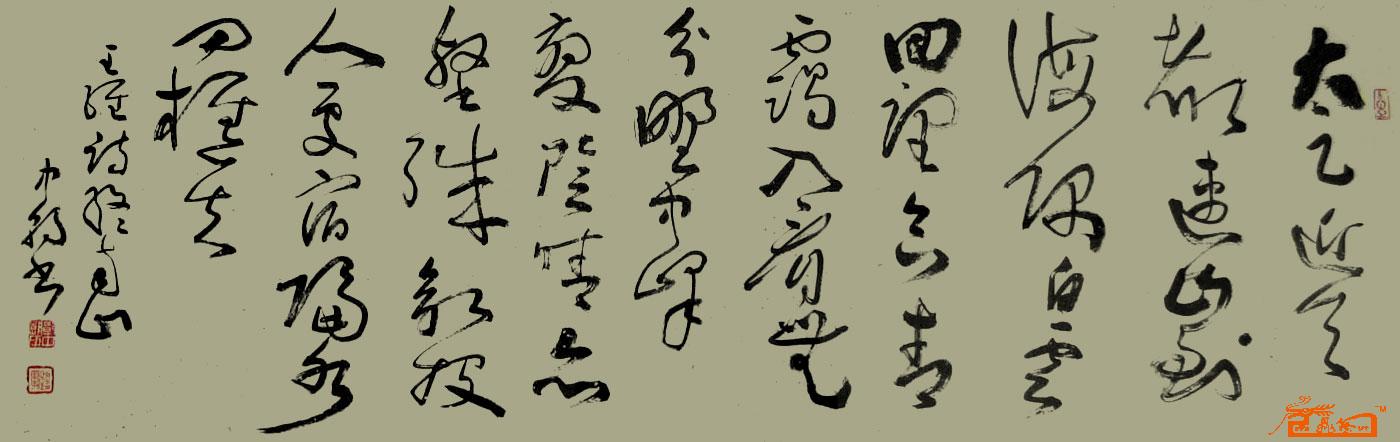 太乙近天
都連山到
海隅白雲
回望合青
靄入看無
分野中峰
變陰晴众
壑殊欲投
人處宿隔水
问樵夫
王維詩終南山
书
TM